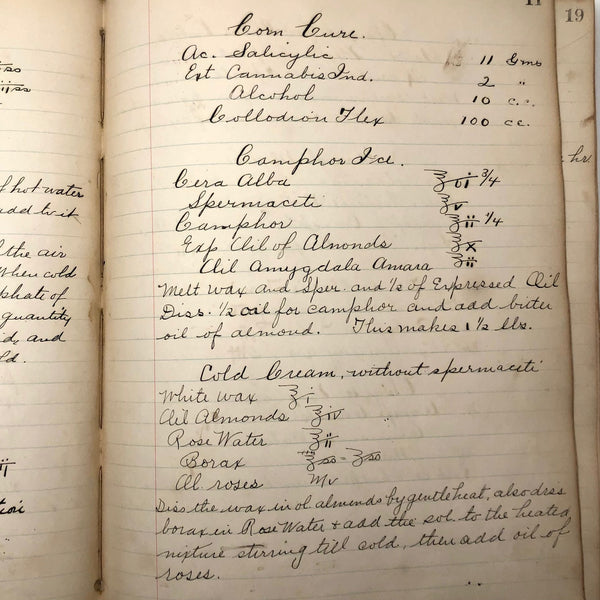 11
19
Corn Cure.
Ac. Salicylic 11 Gms
Ext Cannabis Ind. 2 "
Alcohol 10 c.c.
Collodion Flex 100 cc.
Camphor Ice.
Cera Alba ℥vi 3/4
Spermaceti ℥v
Camphor ℥ii 1/4
Exp Oil of Almonds ℥x
Oil Amygdala Amara ʒii
Melt wax and Sper. and 1/2 of Expressed Oil
Diss. 1/2 oil for camphor and add bitter
oil of almond. This makes 1 1/2 lbs.
Cold Cream, without spermaceti
White wax ℥i
Oil Almonds ℥iv
Rose Water ℥ii
Borax ʒss
Ol. roses Mv
Diss the wax in ol almonds by gentle heat, also diss
borax in Rose Water + add the sol. to the heated
mixture stirring till cold, then add oil of
roses.
of hot water
add to it
the air
When cold
phate of
quantity
and
hr.